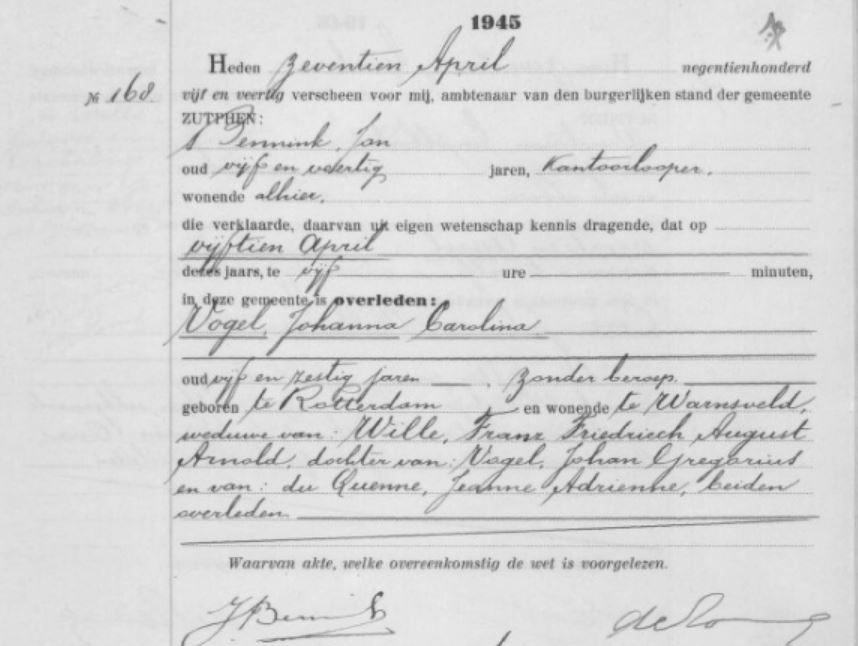 1945
Heden zeventien April negentienhonderd
№ 168. vijf en veertig verscheen voor mij, ambtenaar van den burgerlijken stand der gemeente
ZUTPHEN:
Bennink, Jan
oud vijf en veertig jaren, kantoorlooper,
wonende alhier,
die verklaarde, daarvan uit eigen wetenschap kennis dragende, dat op
vijftien April
dezes jaars, te vijf ure minuten,
in deze gemeente is overleden:
Vogel, Johanna Carolina
oud vijf en zestig jaren, zonder beroep,
geboren te Rotterdam en wonende te Warnsveld,
weduwe van: Wille, Franz Friedriech August
Arnold, dochter van: Vogel, Johan Gregorius
en van: du Quenne, Jeanne Adrienne, beiden
overleden.
Waarvan akte, welke overeenkomstig de wet is voorgelezen.